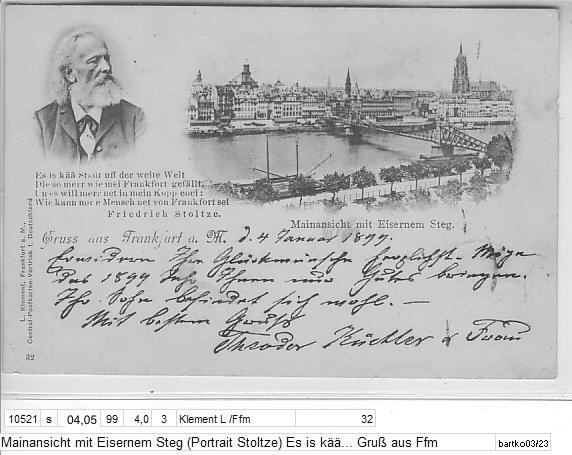 Es is kää Stadt uff der weite Welt
Die so merr wie mei Frankfort gefällt,
Un es will merr net in mein Kopp enei:
Wie kann nor e Mensch net von Frankfort sei
Friedrich Stoltze.
Mainansicht mit Eisernem Steg.
Gruss aus Frankfurt a. M. d. 4 Januar 1899.
Erwidern Ihre Glückwünsche herzlichst. Möge
das 1899 Jahr Ihnen nur Gutes bringen.
Ihr Sohn befindet sich wohl. —
Mit bestem Gruß
Theodor Küchler & Frau
L. Klement, Frankfurt a. M.,
Central-Postkarten-Vertrieb f. Deutschland
32
10521 s 04,05 99 4,0 3 Klement L /Ffm 32
Mainansicht mit Eisernem Steg (Portrait Stoltze) Es is kää... Gruß aus Ffm
bartko03/23